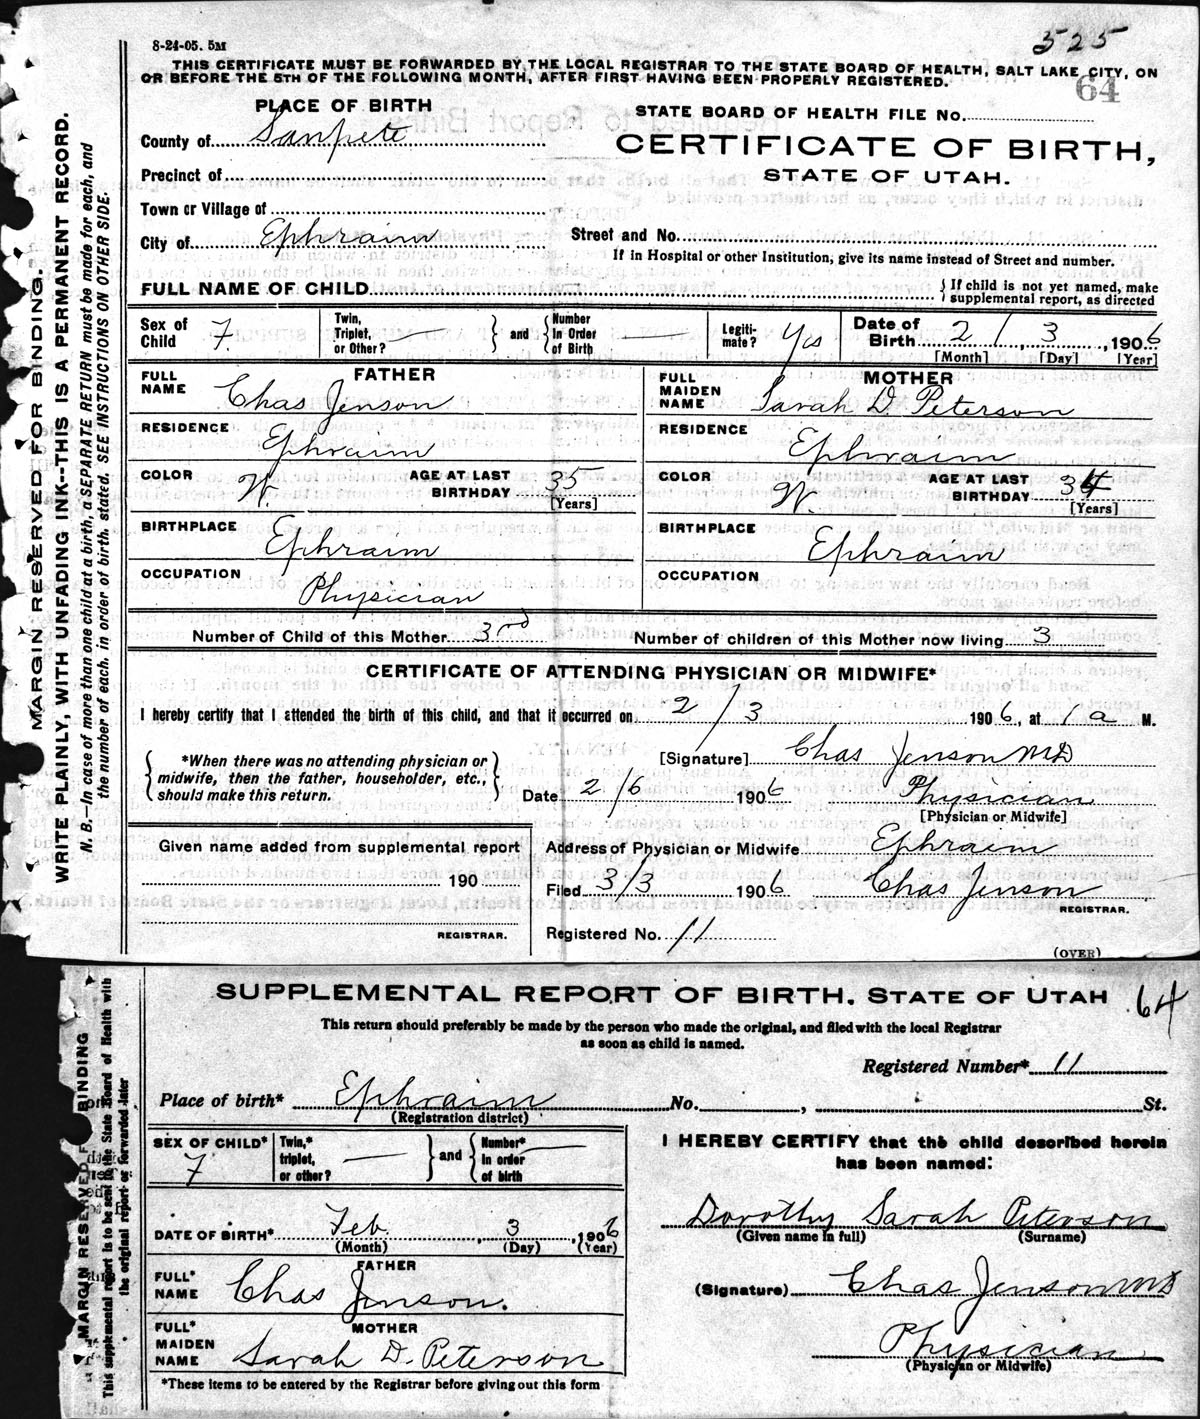 525
8-24-05. 5M
THIS CERTIFICATE MUST BE FORWARDED BY THE LOCAL REGISTRAR TO THE STATE BOARD OF HEALTH, SALT LAKE CITY, ON
OR BEFORE THE 5TH OF THE FOLLOWING MONTH, AFTER FIRST HAVING BEEN PROPERLY REGISTERED.
64
MARGIN RESERVED FOR BINDING.
WRITE PLAINLY, WITH UNFADING INK--THIS IS A PERMANENT RECORD.
N. B.—In case of more than one child at a birth, a SEPARATE RETURN must be made for each, and
the number of each, in order of birth, stated. SEE INSTRUCTIONS ON OTHER SIDE.
PLACE OF BIRTH
STATE BOARD OF HEALTH FILE No.
County of Sanpete
CERTIFICATE OF BIRTH,
STATE OF UTAH.
Precinct of
Town or Village of
City of Ephraim
Street and No.
If in Hospital or other Institution, give its name instead of Street and number.
FULL NAME OF CHILD
{If child is not yet named, make
supplemental report, as directed
Sex of Child F.
Twin, Triplet, or Other? —
and
Number In Order of Birth —
Legiti-mate? Yes
Date of Birth 2 / 3, 1906
[Month] [Day] [Year]
FATHER
FULL NAME Chas Jenson
RESIDENCE Ephraim
COLOR W.
AGE AT LAST BIRTHDAY 35
[Years]
BIRTHPLACE Ephraim
OCCUPATION Physician
MOTHER
FULL MAIDEN NAME Sarah D. Peterson
RESIDENCE Ephraim
COLOR W.
AGE AT LAST BIRTHDAY 34
[Years]
BIRTHPLACE Ephraim
OCCUPATION
Number of Child of this Mother 3rd
Number of children of this Mother now living 3
CERTIFICATE OF ATTENDING PHYSICIAN OR MIDWIFE*
I hereby certify that I attended the birth of this child, and that it occurred on 2/3 1906, at 1 a M.
{*When there was no attending physician or
midwife, then the father, householder, etc.,
should make this return.}
[Signature] Chas Jenson MD
Date 2/6 1906 Physician
[Physician or Midwife]
Given name added from supplemental report
190
REGISTRAR.
Address of Physician or Midwife Ephraim
Filed 3/3 1906 Chas Jenson
REGISTRAR.
Registered No. 11
(OVER)
MARGIN RESERVED FOR BINDING
This supplemental report is to be sent to the State Board of Health with
the original report or forwarded later
SUPPLEMENTAL REPORT OF BIRTH. STATE OF UTAH
64
This return should preferably be made by the person who made the original, and filed with the local Registrar
as soon as child is named.
Registered Number* 11
Place of birth* Ephraim No. , St.
(Registration district)
SEX OF CHILD* F
Twin,* triplet, or other? —
and
Number* in order of birth —
DATE OF BIRTH* Feb. , 3 , 1906
(Month) (Day) (Year)
FATHER
FULL* NAME Chas Jenson.
MOTHER
FULL* MAIDEN NAME Sarah D. Peterson
*These items to be entered by the Registrar before giving out this form
I HEREBY CERTIFY that the child described herein
has been named:
Dorothy Sarah Peterson
(Given name in full) (Surname)
(Signature) Chas Jenson MD
Physician
(Physician or Midwife)